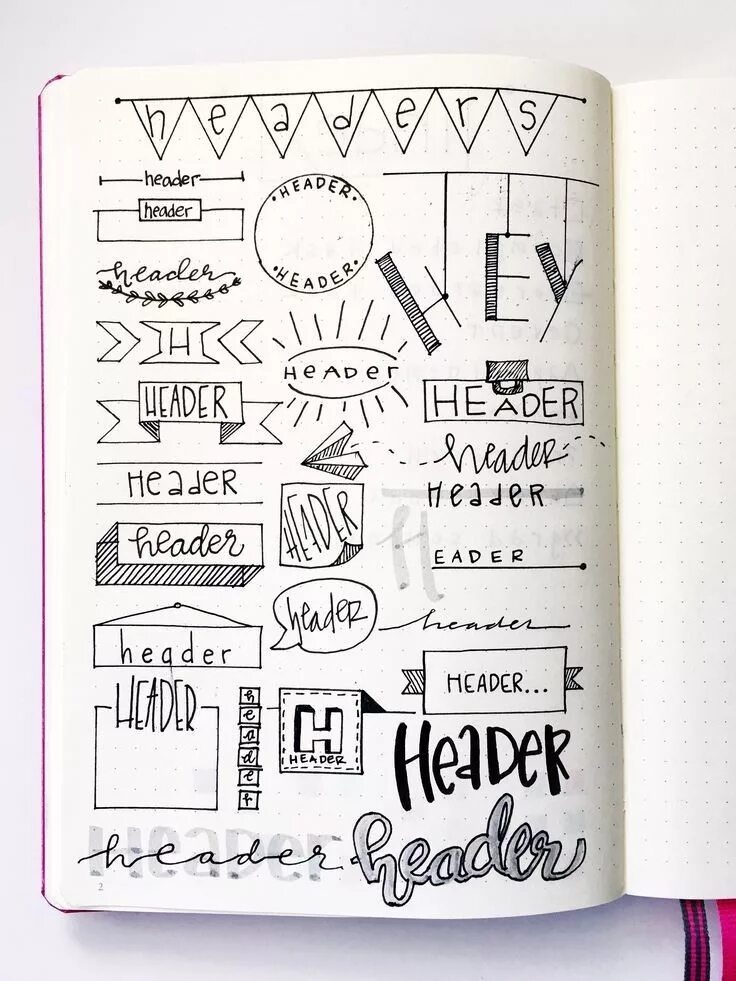 headers
header
header
•HEADER•
•HEADER•
header
HEY
H
HEADER
HEADER
HEADER
header
Header
HEADER
HEADER
header
HEADER
header
header
header
HEADER...
HEADER
header
H
HEADER
HEADER
header
HEADER
header
2